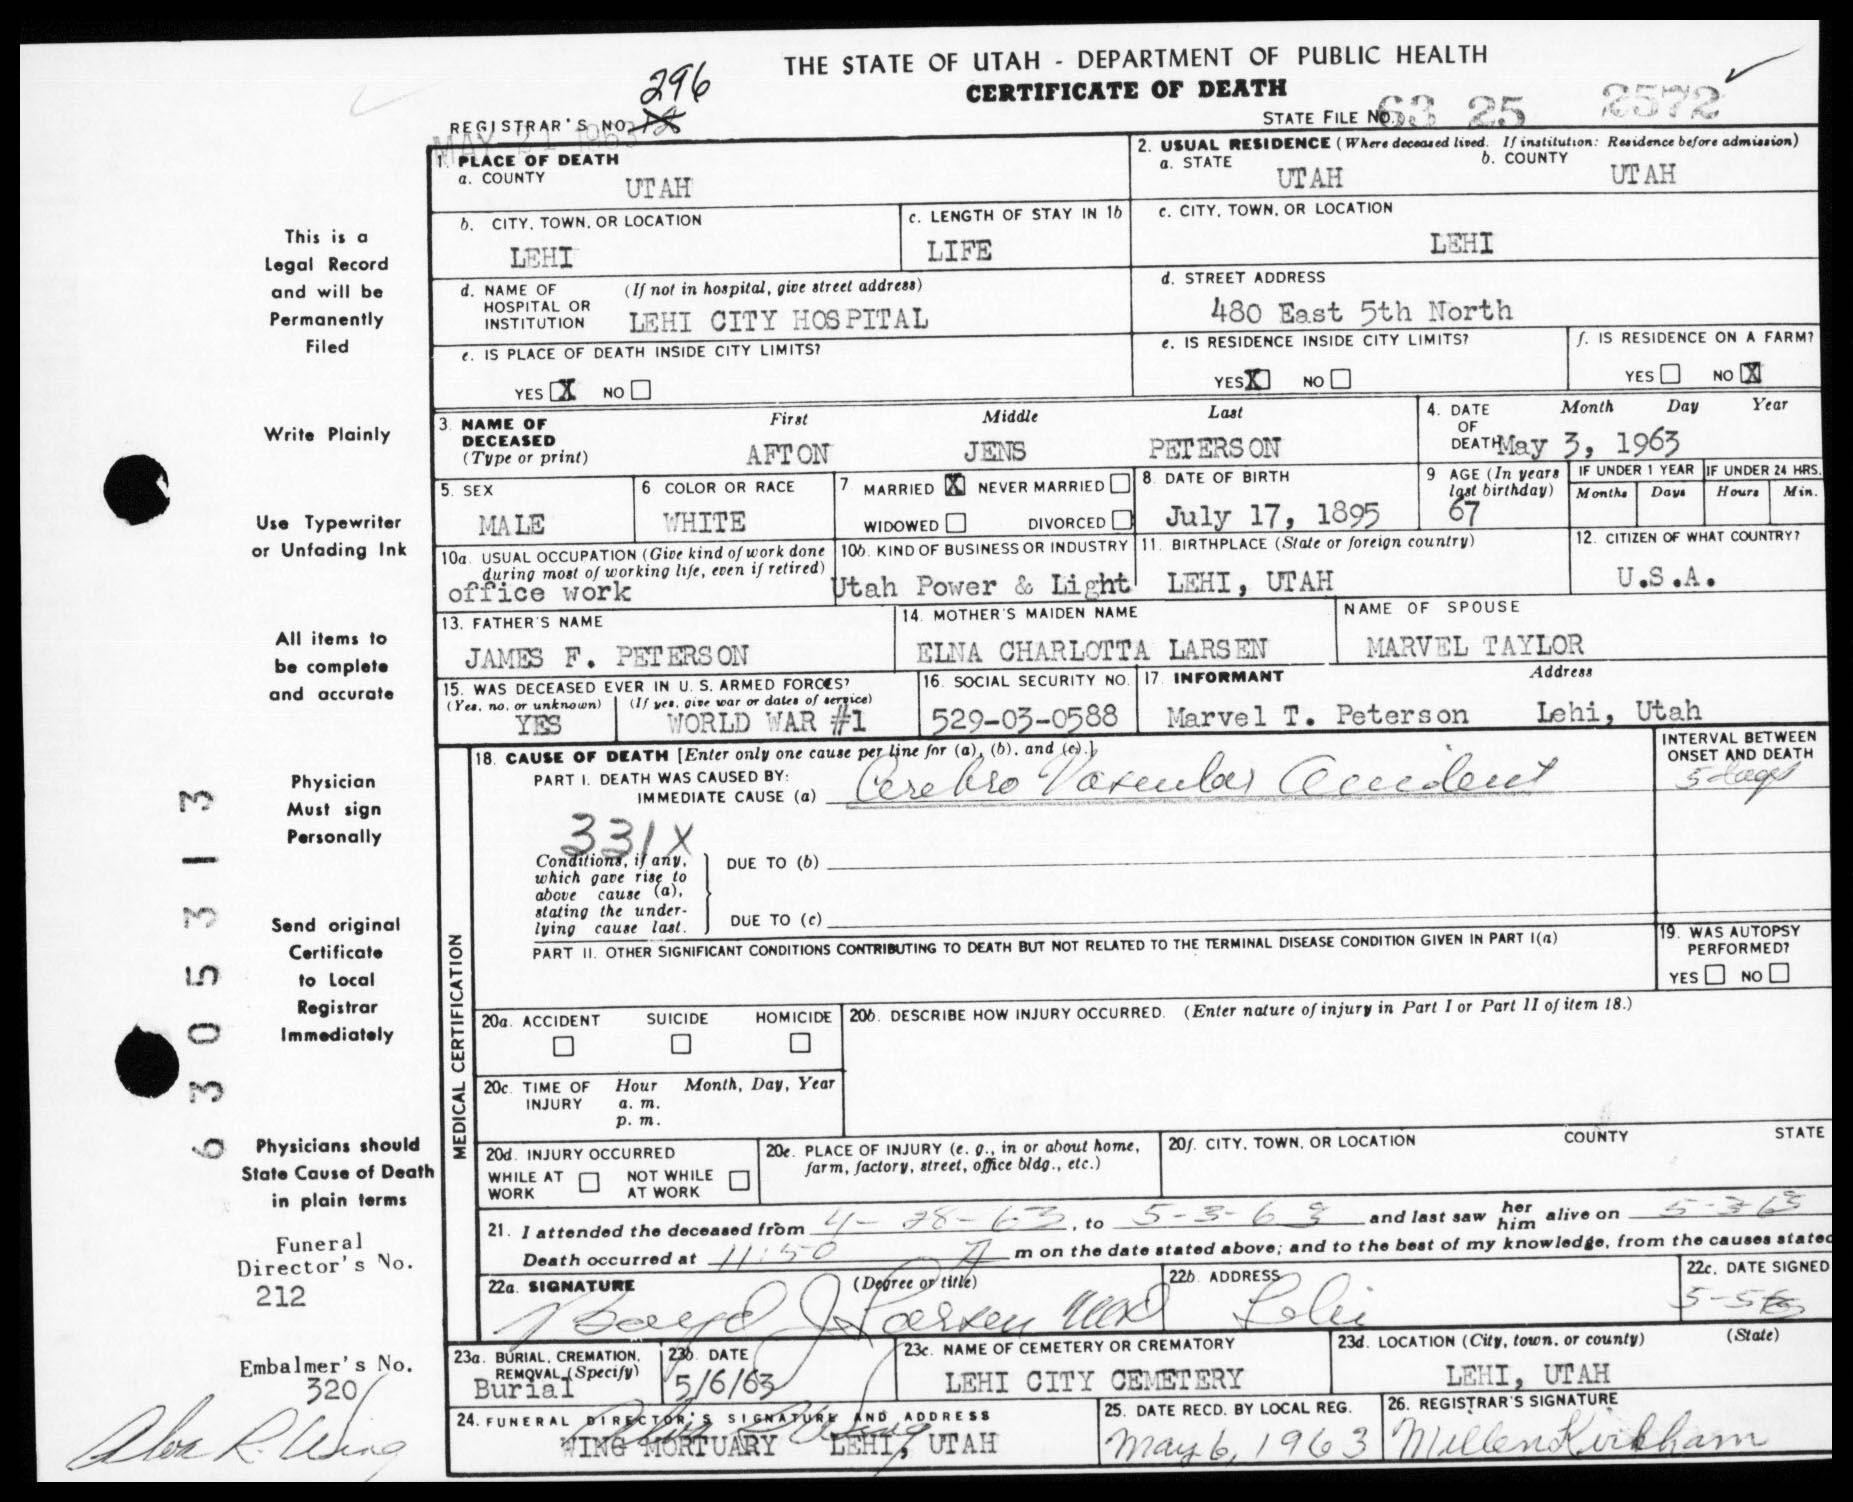 THE STATE OF UTAH - DEPARTMENT OF PUBLIC HEALTH
CERTIFICATE OF DEATH
296
REGISTRAR'S NO. 12
STATE FILE NO. 63 25 2572
MAY 21 1963
1. PLACE OF DEATH
a. COUNTY
UTAH
2. USUAL RESIDENCE (Where deceased lived. If institution: Residence before admission)
a. STATE b. COUNTY
UTAH UTAH
b. CITY, TOWN, OR LOCATION
LEHI
c. LENGTH OF STAY IN 1b
LIFE
c. CITY, TOWN, OR LOCATION
LEHI
d. NAME OF HOSPITAL OR INSTITUTION (If not in hospital, give street address)
LEHI CITY HOSPITAL
d. STREET ADDRESS
480 East 5th North
e. IS PLACE OF DEATH INSIDE CITY LIMITS?
YES X NO
e. IS RESIDENCE INSIDE CITY LIMITS?
YES X NO
f. IS RESIDENCE ON A FARM?
YES NO X
3. NAME OF DECEASED (Type or print)
First Middle Last
AFTON JENS PETERSON
4. DATE OF DEATH Month Day Year
May 3, 1963
5. SEX
MALE
6. COLOR OR RACE
WHITE
7. MARRIED X NEVER MARRIED
WIDOWED DIVORCED
8. DATE OF BIRTH
July 17, 1895
9 AGE (In years last birthday)
67
IF UNDER 1 YEAR
Months Days
IF UNDER 24 HRS.
Hours Min.
10a. USUAL OCCUPATION (Give kind of work done during most of working life, even if retired)
office work
10b. KIND OF BUSINESS OR INDUSTRY
Utah Power & Light
11. BIRTHPLACE (State or foreign country)
LEHI, UTAH
12. CITIZEN OF WHAT COUNTRY?
U.S.A.
13. FATHER'S NAME
JAMES F. PETERSON
14. MOTHER'S MAIDEN NAME
ELNA CHARLOTTA LARSEN
NAME OF SPOUSE
MARVEL TAYLOR
15. WAS DECEASED EVER IN U.S. ARMED FORCES?
(Yes, no, or unknown) (If yes, give war or dates of service)
YES WORLD WAR #1
16. SOCIAL SECURITY NO.
529-03-0588
17. INFORMANT Address
Marvel T. Peterson Lehi, Utah
MEDICAL CERTIFICATION
18. CAUSE OF DEATH [Enter only one cause per line for (a), (b), and (c).]
PART I. DEATH WAS CAUSED BY:
IMMEDIATE CAUSE (a) Cerebro Vascular Accident
INTERVAL BETWEEN ONSET AND DEATH
5 days
331X
Conditions, if any, which gave rise to above cause (a), stating the underlying cause last.
DUE TO (b)
DUE TO (c)
PART II. OTHER SIGNIFICANT CONDITIONS CONTRIBUTING TO DEATH BUT NOT RELATED TO THE TERMINAL DISEASE CONDITION GIVEN IN PART I(a)
19. WAS AUTOPSY PERFORMED?
YES NO
20a. ACCIDENT SUICIDE HOMICIDE
20b. DESCRIBE HOW INJURY OCCURRED. (Enter nature of injury in Part I or Part II of item 18.)
20c. TIME OF INJURY Hour Month, Day, Year
a. m.
p. m.
20d. INJURY OCCURRED
WHILE AT WORK NOT WHILE AT WORK
20e. PLACE OF INJURY (e. g., in or about home, farm, factory, street, office bldg., etc.)
20f. CITY, TOWN, OR LOCATION COUNTY STATE
21. I attended the deceased from 4-28-63, to 5-3-63 and last saw her him alive on 5-3-63
Death occurred at 11:50 A m on the date stated above; and to the best of my knowledge, from the causes stated
22a. SIGNATURE (Degree or title)
Boyd J Larsen MD
22b. ADDRESS
Lehi
22c. DATE SIGNED
5-5-63
23a. BURIAL, CREMATION, REMOVAL (Specify)
Burial
23b. DATE
5/6/63
23c. NAME OF CEMETERY OR CREMATORY
LEHI CITY CEMETERY
23d. LOCATION (City, town, or county) (State)
LEHI, UTAH
24. FUNERAL DIRECTOR'S SIGNATURE AND ADDRESS
Alva R. Wing
WING MORTUARY LEHI, UTAH
25. DATE RECD. BY LOCAL REG.
May 6, 1963
26. REGISTRAR'S SIGNATURE
Millen Kirkham
This is a
Legal Record
and will be
Permanently
Filed
Write Plainly
Use Typewriter
or Unfading Ink
All items to
be complete
and accurate
Physician
Must sign
Personally
Send original
Certificate
to Local
Registrar
Immediately
Physicians should
State Cause of Death
in plain terms
Funeral
Director's No.
212
Embalmer's No.
320
Alva R. Wing
6305313